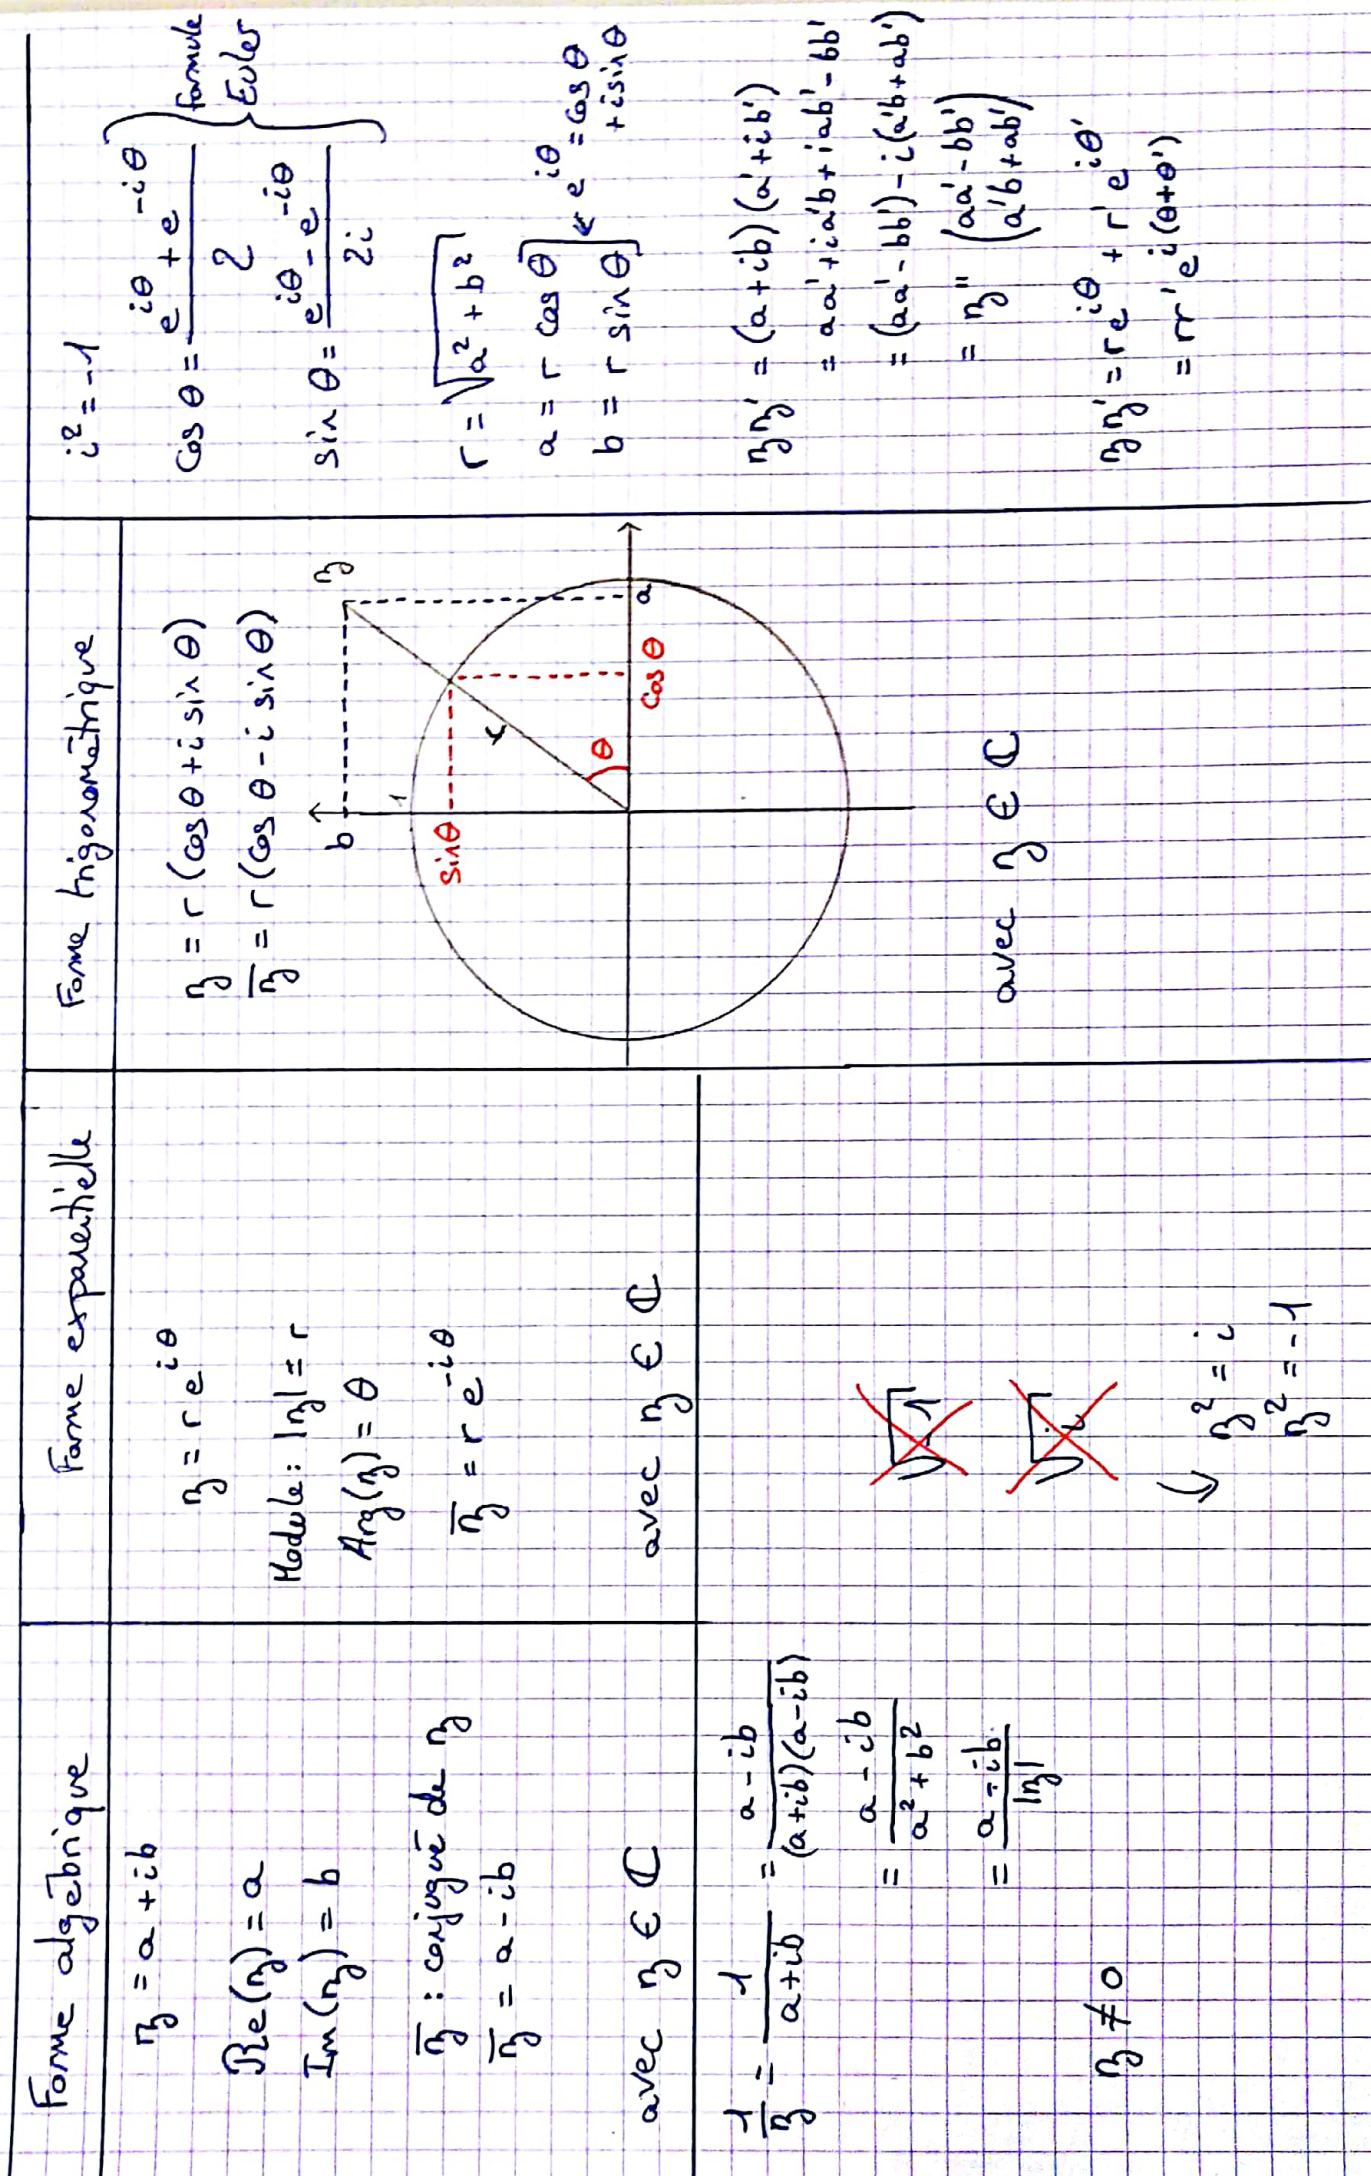 Forme algébrique
z = a + ib
Re(z) = a
Im(z) = b
z̅ : conjugué de z
z̅ = a - ib
avec z ∈ ℂ
1/z = 1/(a+ib) = (a-ib)/((a+ib)(a-ib))
= (a-ib)/(a²+b²)
= (a-ib)/|z|
z ≠ 0
Forme exponentielle
z = r e^{iθ}
Module : |z| = r
Arg(z) = θ
z̅ = r e^{-iθ}
avec z ∈ ℂ
√-1
√i
↳ z² = i
z² = -1
Forme trigonométrique
z = r (cos θ + i sin θ)
z̅ = r (cos θ - i sin θ)
b
z
1
sinθ
r
θ
cos θ
a
avec z ∈ ℂ
i² = -1
cos θ = (e^{iθ} + e^{-iθ})/2
sin θ = (e^{iθ} - e^{-iθ})/2i
formule
Euler
r = √(a² + b²)
a = r cos θ
b = r sin θ
← e^{iθ} = cos θ
+ i sin θ
zz' = (a+ib)(a'+ib')
= aa' + ia'b + iab' - bb'
= (aa' - bb') - i(a'b + ab')
= z'' (aa' - bb')
(a'b + ab')
zz' = re^{iθ} + r'e^{iθ'}
= rr' e^{i(θ+θ')}